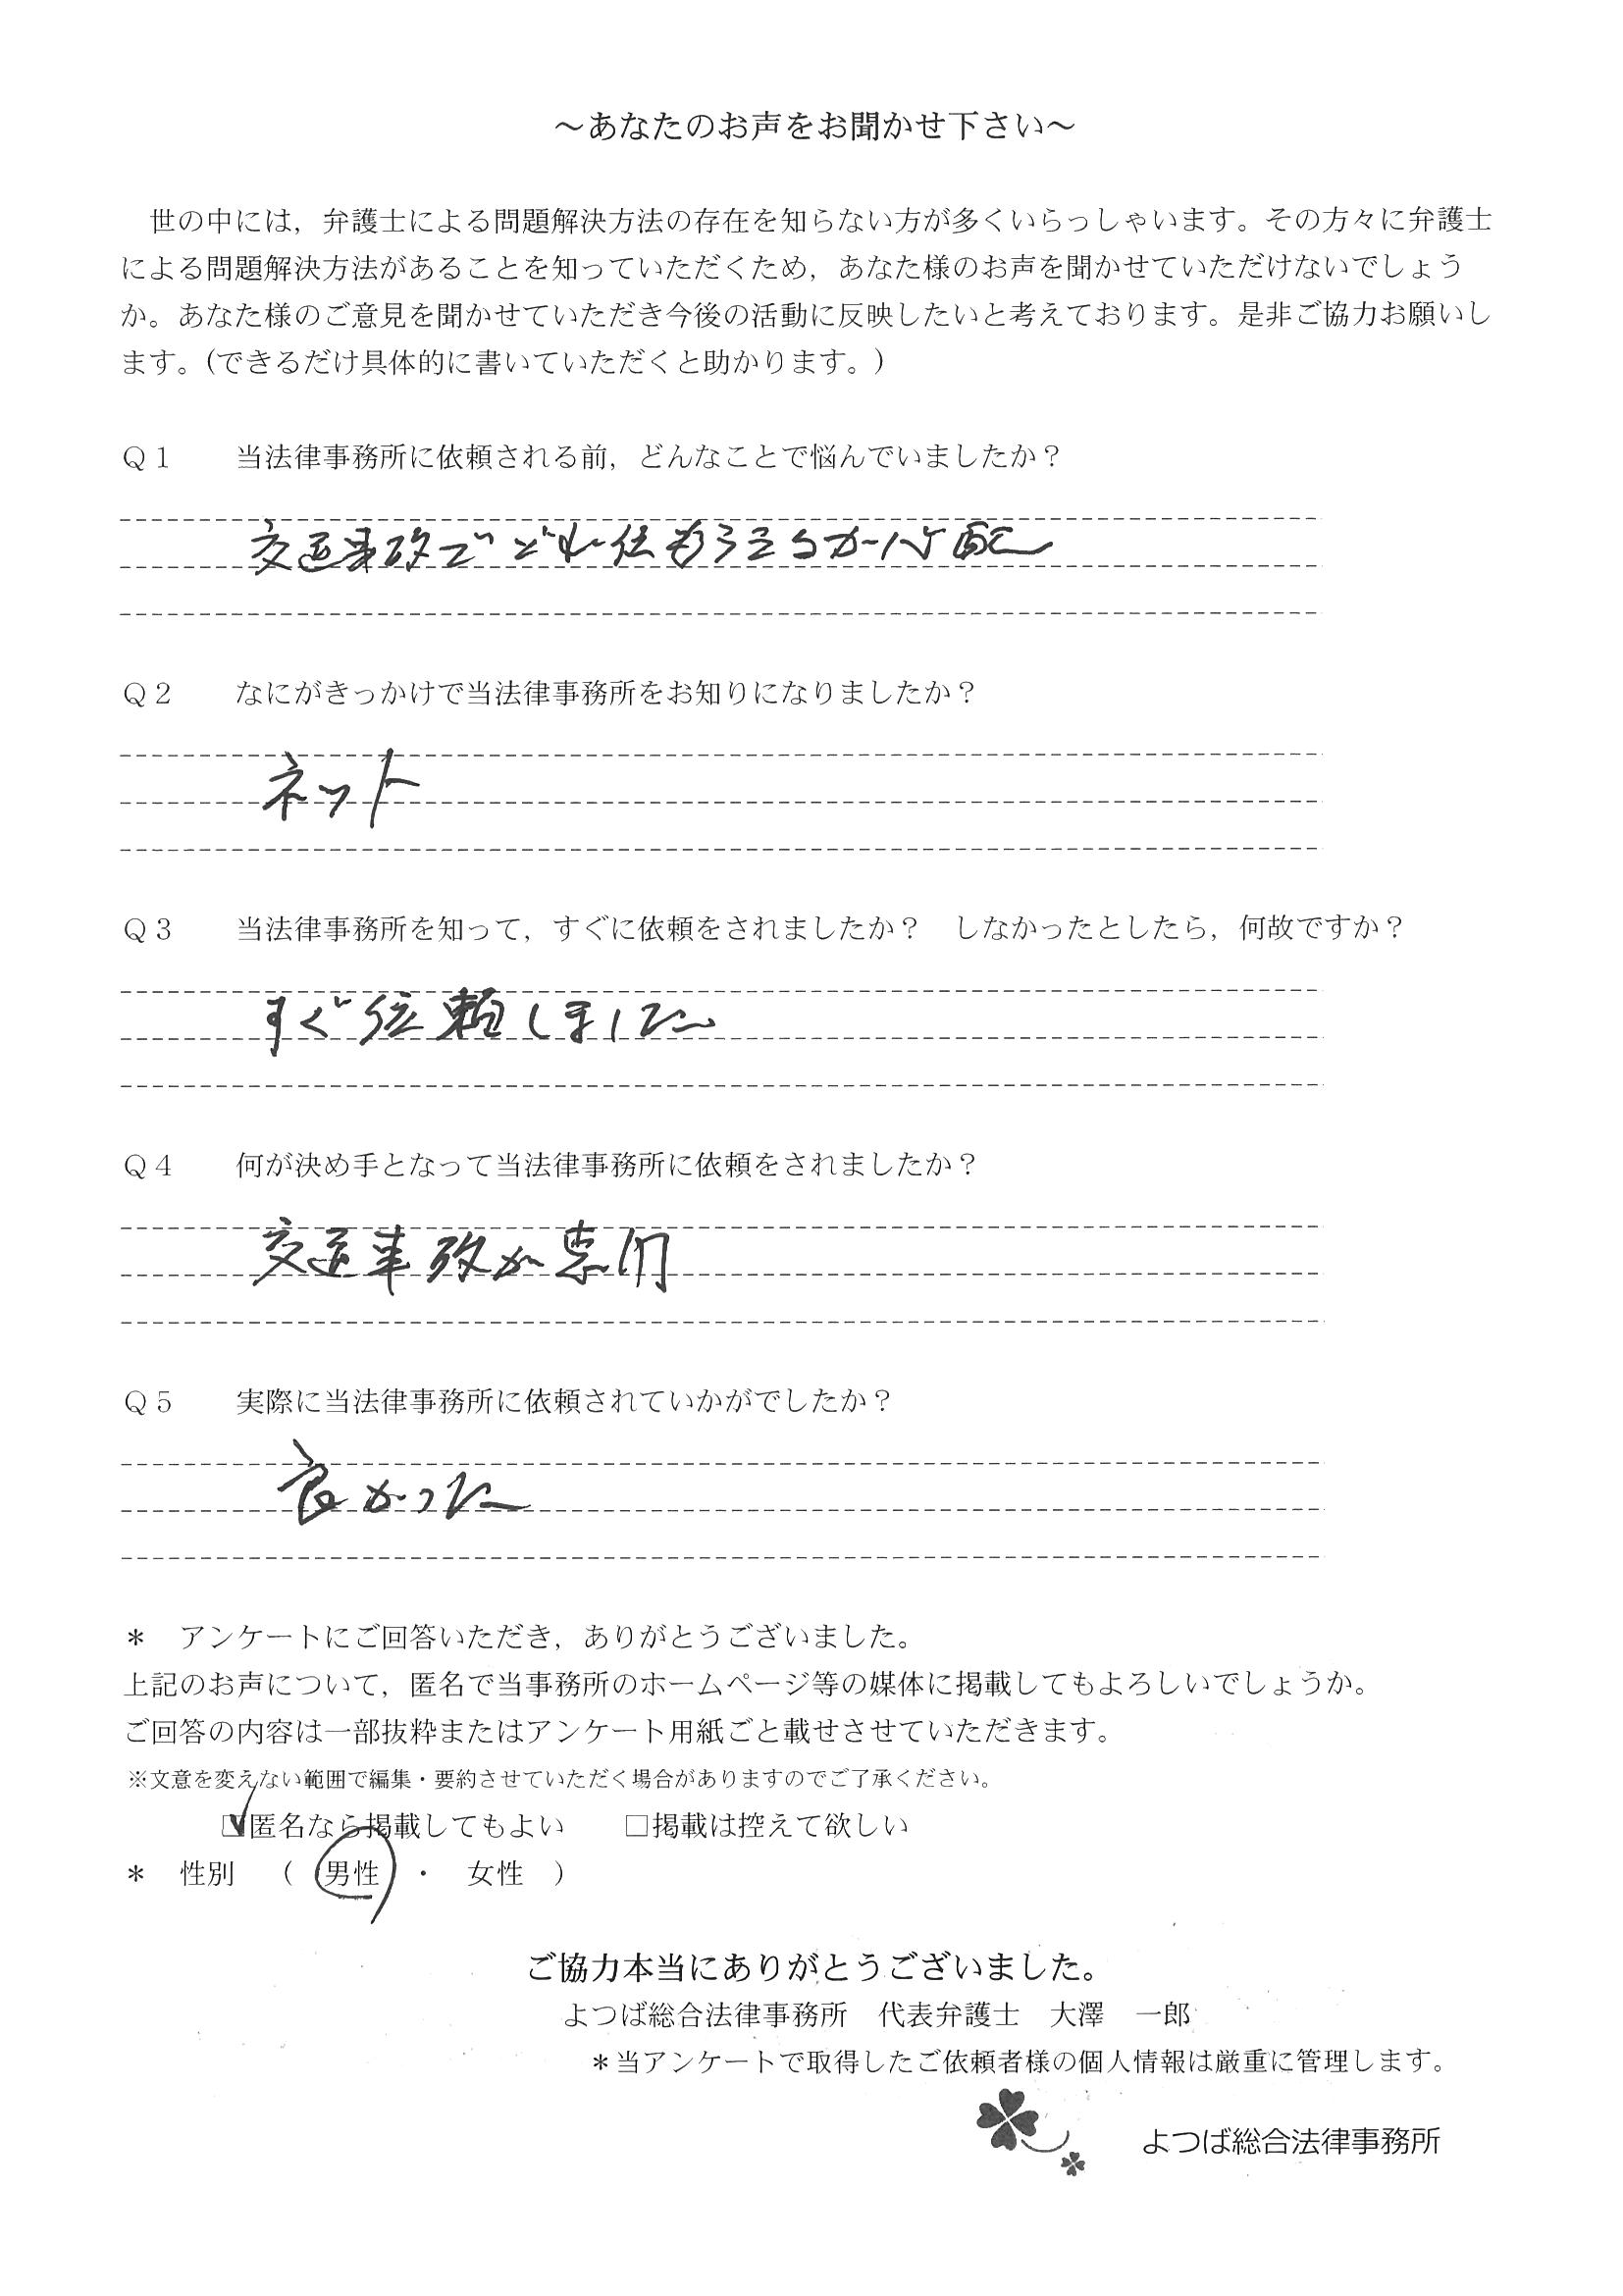 ～あなたのお声をお聞かせ下さい～
世の中には，弁護士による問題解決方法の存在を知らない方が多くいらっしゃいます。その方々に弁護士
による問題解決方法があることを知っていただくため，あなた様のお声を聞かせていただけないでしょう
か。あなた様のご意見を聞かせていただき今後の活動に反映したいと考えております。是非ご協力お願いし
ます。(できるだけ具体的に書いていただくと助かります。)
Ｑ１　当法律事務所に依頼される前，どんなことで悩んでいましたか？
交通事故でどれ位もらえるか心配
Ｑ２　なにがきっかけで当法律事務所をお知りになりましたか？
ネット
Ｑ３　当法律事務所を知って，すぐに依頼をされましたか？　しなかったとしたら，何故ですか？
すぐ依頼しました
Ｑ４　何が決め手となって当法律事務所に依頼をされましたか？
交通事故が専門
Ｑ５　実際に当法律事務所に依頼されていかがでしたか？
良かった
＊　アンケートにご回答いただき，ありがとうございました。
上記のお声について，匿名で当事務所のホームページ等の媒体に掲載してもよろしいでしょうか。
ご回答の内容は一部抜粋またはアンケート用紙ごと載せさせていただきます。
※文意を変えない範囲で編集・要約させていただく場合がありますのでご了承ください。
☑匿名なら掲載してもよい　□掲載は控えて欲しい
＊　性別　（　男性　・　女性　）
ご協力本当にありがとうございました。
よつば総合法律事務所　代表弁護士　大澤　一郎
＊当アンケートで取得したご依頼者様の個人情報は厳重に管理します。
よつば総合法律事務所